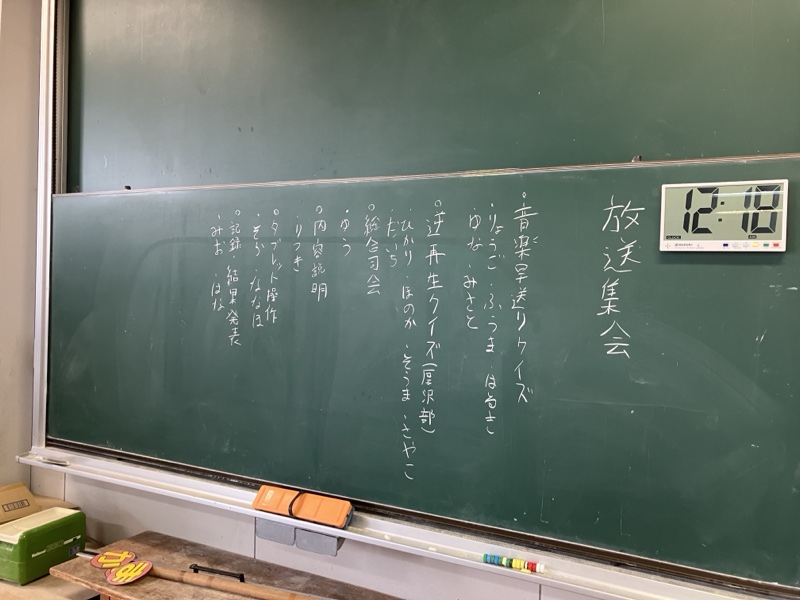 放送集会
12:18
○音楽早送りクイズ
・りょうご・ふうま・はるき
ゆな・みさと
○逆再生クイズ(厚沢部)
・ひかり・ほのか・そうま・さやこ
・だいち
○総合司会
・ゆう
○内容説明
・りつき
○タブレット操作
・そら・ななほ
○記録 結果発表
・みお・はな